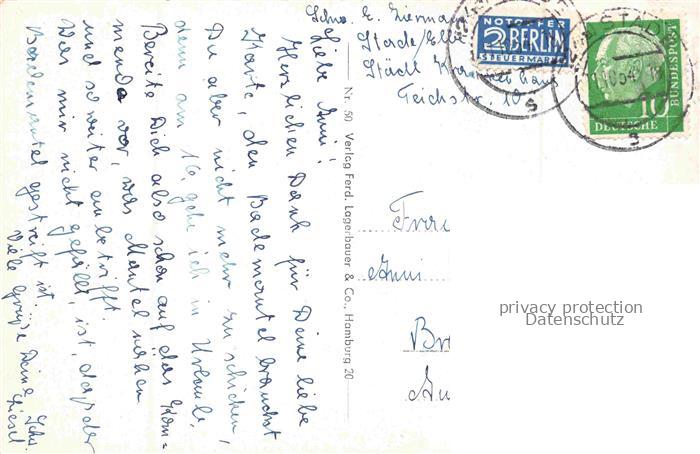 Schw. E.
Stade/Elbe
Städt. Krankenhaus
Teichstr. 10
NOTOPFER
2 BERLIN
STEUERMARKE
STADE
10
DEUTSCHE
BUNDESPOST
Liebe Anni!
Herzlichen Dank für Deine liebe
Karte, den Bademantel brauchst
Du aber nicht mehr zu schicken,
denn am 16. gehe ich in Urlaub.
Bereite Dich also schon auf das Kom-
mende vor, was Mäntel nähen
und so weiter anbetrifft.
Was mir nicht gefällt, ist, daß der
Bademantel gestreift ist.
Viele Grüße Deine Schw.
Liesel
Nr. 50 Verlag Ferd. Lagerbauer & Co., Hamburg 20
Frau
Anni
Br
privacy protection
Datenschutz